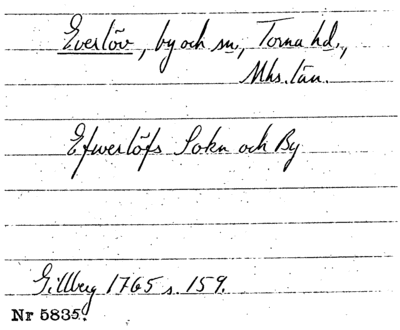 Everlöv, by och sn, Torna hd.,
Mhs. län.
Efwerlöfs Sokn och By
Gillberg 1765 s. 159.
Nr 5835.